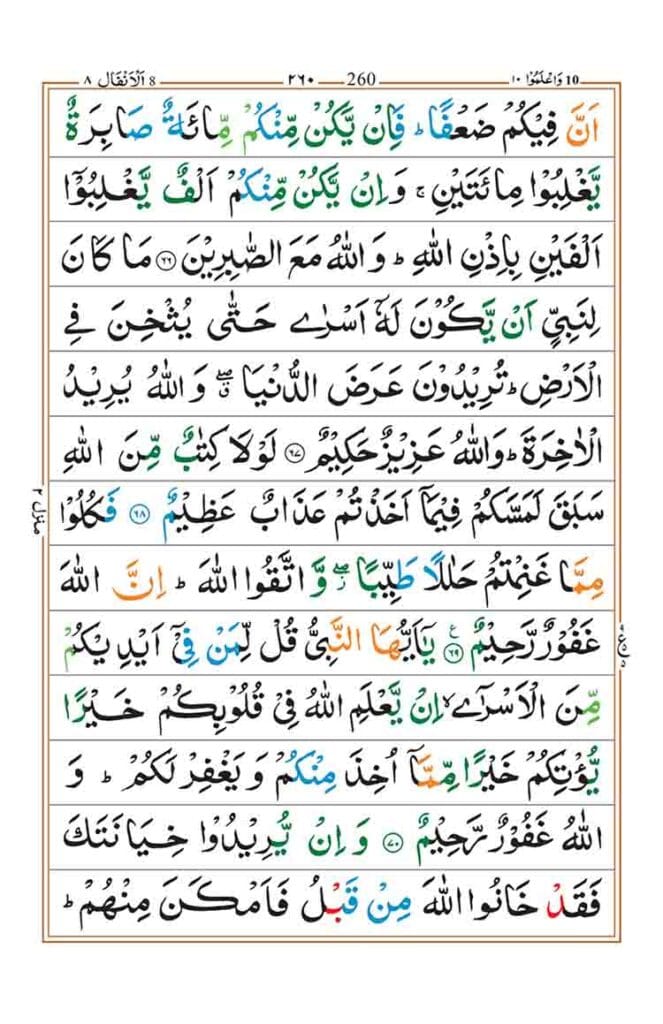 10 وَاعْلَمُوْا ١٠ 260 ٢٦٠ 8 اَلْاَنْفَال ٨
اَنَّ فِيْكُمْ ضَعْفًا ؕ فَاِنْ يَّكُنْ مِّنْكُمْ مِّائَةٌ صَابِرَةٌ
يَّغْلِبُوْا مِائَتَيْنِ ۚ وَاِنْ يَّكُنْ مِّنْكُمْ اَلْفٌ يَّغْلِبُوْۤا
اَلْفَيْنِ بِاِذْنِ اللّٰهِ ؕ وَاللّٰهُ مَعَ الصّٰبِرِيْنَ ﴿٦٦﴾ مَا كَانَ
لِنَبِيٍّ اَنْ يَّكُوْنَ لَهٗۤ اَسْرٰى حَتّٰى يُثْخِنَ فِى
الْاَرْضِ ؕ تُرِيْدُوْنَ عَرَضَ الدُّنْيَا ۖۗ وَاللّٰهُ يُرِيْدُ
الْاٰخِرَةَ ؕ وَاللّٰهُ عَزِيْزٌ حَكِيْمٌ ﴿٦٧﴾ لَوْلَا كِتٰبٌ مِّنَ اللّٰهِ
سَبَقَ لَمَسَّكُمْ فِيْمَاۤ اَخَذْتُمْ عَذَابٌ عَظِيْمٌ ﴿٦٨﴾ فَكُلُوْا
مِمَّا غَنِمْتُمْ حَلٰلًا طَيِّبًا ۖۗ وَّاتَّقُوا اللّٰهَ ؕ اِنَّ اللّٰهَ
غَفُوْرٌ رَّحِيْمٌ ﴿٦٩﴾ ع يٰۤاَيُّهَا النَّبِىُّ قُلْ لِّمَنْ فِىْۤ اَيْدِيْكُمْ
مِّنَ الْاَسْرٰٓى ۙ اِنْ يَّعْلَمِ اللّٰهُ فِىْ قُلُوْبِكُمْ خَيْرًا
يُّؤْتِكُمْ خَيْرًا مِّمَّاۤ اُخِذَ مِنْكُمْ وَيَغْفِرْ لَكُمْ ؕ وَ
اللّٰهُ غَفُوْرٌ رَّحِيْمٌ ﴿٧٠﴾ وَاِنْ يُّرِيْدُوْا خِيَانَتَكَ
فَقَدْ خَانُوا اللّٰهَ مِنْ قَبْلُ فَاَمْكَنَ مِنْهُمْ ؕ
منزل ٢